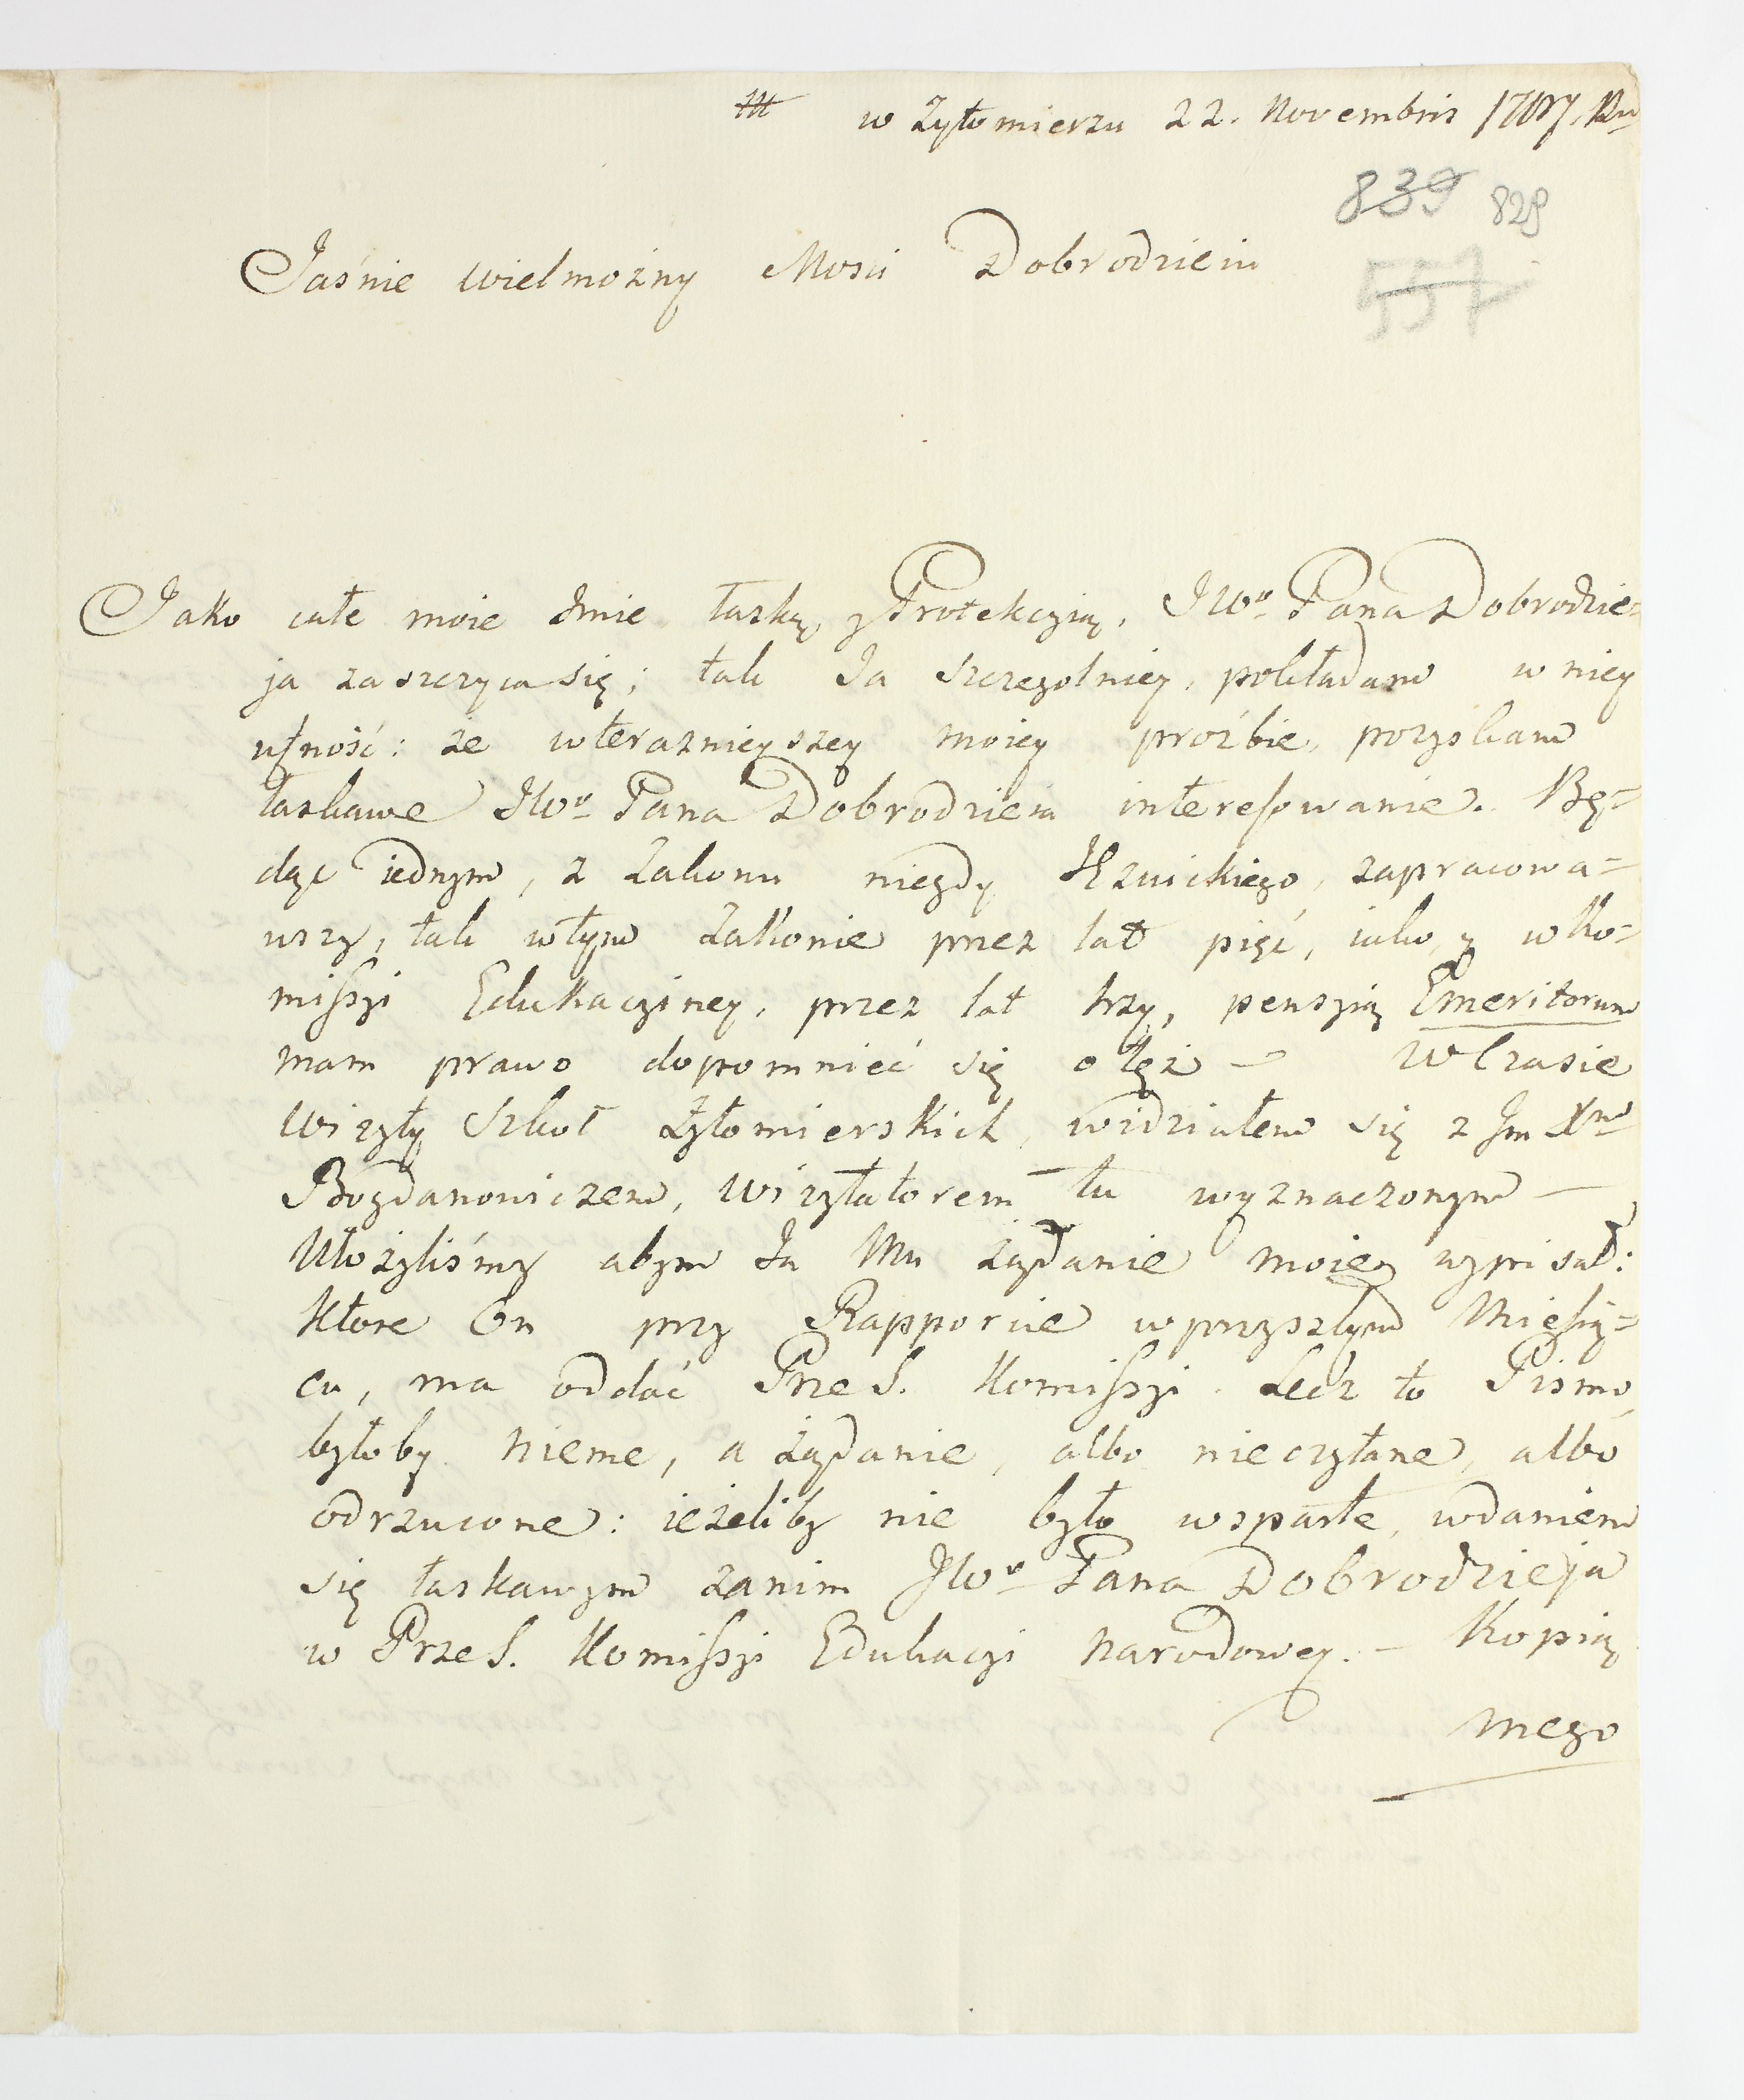 w Żytomierzu 22. Novembris 1787. Ru
839 829
557
Jaśnie wielmożny Mosci Dobrodzieiu
Jako całe moie Jmie łaską, y Protekcyią, JWo Pana Dobrodzie=
ja zaszczyca się; tak Ja szczegolniey, pokładam w niey
ufność: że wterazniejszey moiey proźbie, pozyskam
łaskawe JWo Pana Dobrodzieia interessowanie. Bę=
dąc iednym, z Zakonu niegdy Jezuickiego, zapracowa=
wszy, tak wtym Zakonie przez lat pięć, iako, y wKo=
missyi Edukacyiney, przez lat trzy, penszyią Emeritorum
mam prawo dopomnieć się oteż – wCzasie
wizyty Szkoł Żytomierskich, widziałem się z Jm Xm
Bogdanowiczem, wizytatorem tu wyznaczonym –
Ułożyliśmy abym Ja Mu żądanie moie wypisał:
Ktore On przy Rapporcie wprzyszłym Miesią=
cu, ma oddać PrzeS. Komissyi. Lecz to Pismo,
byłoby nieme, a żądanie, albo nieczytane, albo
odrzucone: ieżeliby nie było wsparte, wdaniem
się łaskawym zanim JWo Pana Dobrodzieja
w PrzeS. Komissyi Edukacyi Narodowey. – Kopią
mego